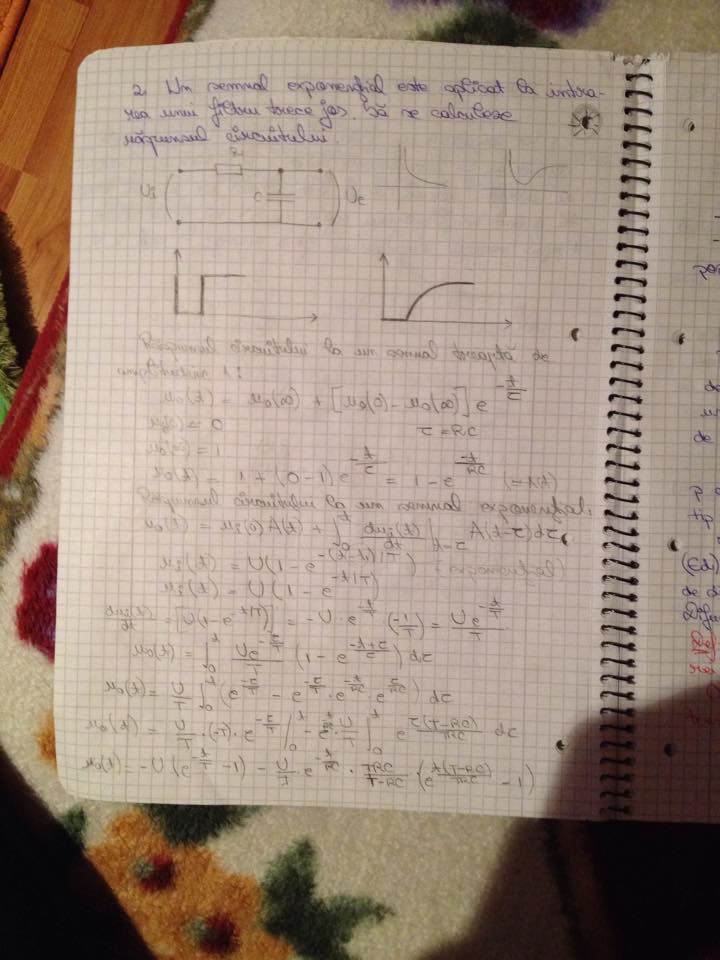 2. Un semnal exponențial este aplicat la intra-
rea unui filtru trece jos. Să se calculeze
răspunsul circuitului.
R
U_i C U_e
Răspunsul circuitului la un semnal treaptă de
amplitudine 1:
u_o(t) = u_o(∞) + [u_o(0) - u_o(∞)] e^{-t/τ}
u_o(0) = 0 τ = RC
u_o(∞) = 1
u_o(t) = 1 + (0-1) e^{-t/τ} = 1 - e^{-t/RC} (= A(t))
Răspunsul circuitului la un semnal exponențial:
u_o(t) = u_i(0) A(t) + ∫_0^t du_i(t)/dt |_{t=τ} A(t-τ) dτ
u_i(t) = U(1 - e^{-(t-t_1)/T}) (exponențial)
u_i(t) = U(1 - e^{-t/T})
du_i(t)/dt = [U(1-e^{-t/T})]' = -U · e^{-t/T} (-1/T) = U e^{-t/T}/T
u_o(t) = ∫_0^t U e^{-τ/T}/T (1 - e^{(-t+τ)/τ}) dτ
u_o(t) = U/T ∫_0^t (e^{-τ/T} - e^{-τ/T} · e^{-t/RC} · e^{τ/RC}) dτ
u_o(t) = U/T · (-T) · e^{-τ/T} |_0^t - e^{-t/RC} · U/T ∫_0^t e^{τ(T-RC)/TRC} dτ
u_o(t) = -U (e^{-t/T} - 1) - U/T · e^{-t/RC} · TRC/(T-RC) · (e^{t(T-RC)/TRC} - 1)